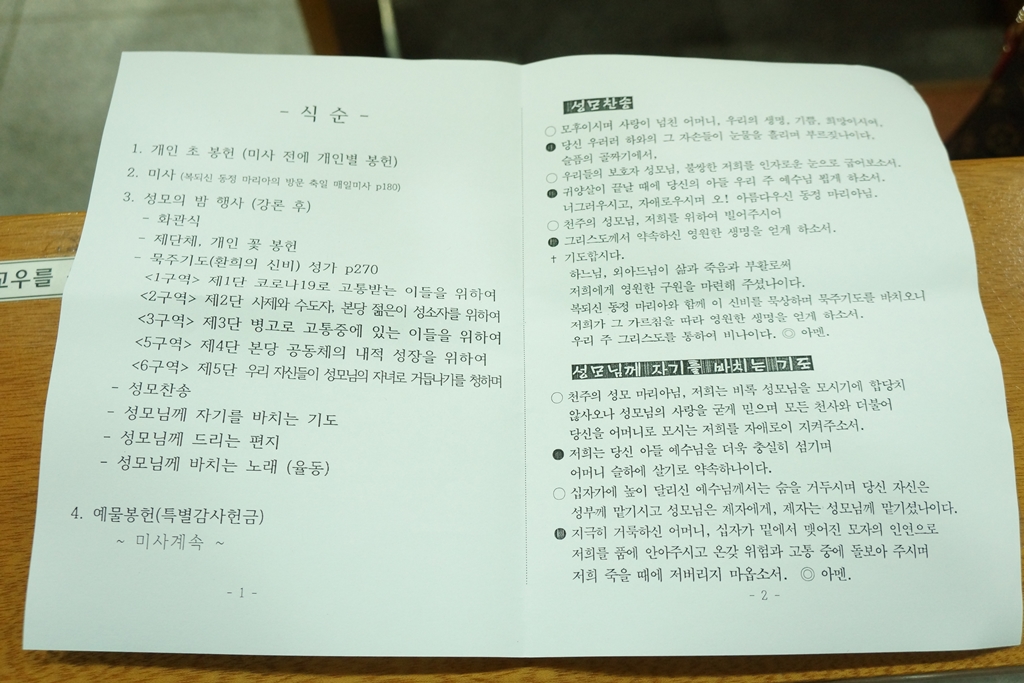 교우를
- 식 순 -
1. 개인 초 봉헌 (미사 전에 개인별 봉헌)
2. 미사 (복되신 동정 마리아의 방문 축일 매일미사 p180)
3. 성모의 밤 행사 (강론 후)
- 화관식
- 제단체, 개인 꽃 봉헌
- 묵주기도(환희의 신비) 성가 p270
<1구역> 제1단 코로나19로 고통받는 이들을 위하여
<2구역> 제2단 사제와 수도자, 본당 젊은이 성소자를 위하여
<3구역> 제3단 병고로 고통중에 있는 이들을 위하여
<5구역> 제4단 본당 공동체의 내적 성장을 위하여
<6구역> 제5단 우리 자신들이 성모님의 자녀로 거듭나기를 청하며
- 성모찬송
- 성모님께 자기를 바치는 기도
- 성모님께 드리는 편지
- 성모님께 바치는 노래 (율동)
4. 예물봉헌(특별감사헌금)
~ 미사계속 ~
- 1 -
성모찬송
○ 모후이시며 사랑이 넘친 어머니, 우리의 생명, 기쁨, 희망이시여,
● 당신 우러러 하와의 그 자손들이 눈물을 흘리며 부르짖나이다.
슬픔의 골짜기에서.
○ 우리들의 보호자 성모님, 불쌍한 저희를 인자로운 눈으로 굽어보소서.
● 귀양살이 끝날 때에 당신의 아들 우리 주 예수님 뵙게 하소서.
너그러우시고, 자애로우시며 오! 아름다우신 동정 마리아님.
○ 천주의 성모님, 저희를 위하여 빌어주시어
● 그리스도께서 약속하신 영원한 생명을 얻게 하소서.
✝ 기도합시다.
하느님, 외아드님이 삶과 죽음과 부활로써
저희에게 영원한 구원을 마련해 주셨나이다.
복되신 동정 마리아와 함께 이 신비를 묵상하며 묵주기도를 바치오니
저희가 그 가르침을 따라 영원한 생명을 얻게 하소서.
우리 주 그리스도를 통하여 비나이다. ◎ 아멘.
성모님께 자기를 바치는 기도
○ 천주의 성모 마리아님, 저희는 비록 성모님을 모시기에 합당치
않사오나 성모님의 사랑을 굳게 믿으며 모든 천사와 더불어
당신을 어머니로 모시는 저희를 자애로이 지켜주소서.
● 저희는 당신 아들 예수님을 더욱 충실히 섬기며
어머니 슬하에 살기로 약속하나이다.
○ 십자가에 높이 달리신 예수님께서는 숨을 거두시며 당신 자신은
성부께 맡기시고 성모님은 제자에게, 제자는 성모님께 맡기셨나이다.
● 지극히 거룩하신 어머니, 십자가 밑에서 맺어진 모자의 인연으로
저희를 품에 안아주시고 온갖 위험과 고통 중에 돌보아 주시며
저희 죽을 때에 저버리지 마옵소서. ◎ 아멘.
- 2 -